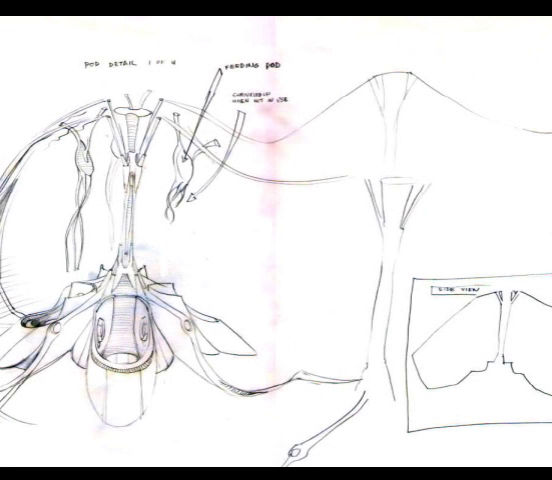 POD DETAIL 1 OF 4
FEEDING POD
WHEN NOT IN USE
SIDE VIEW